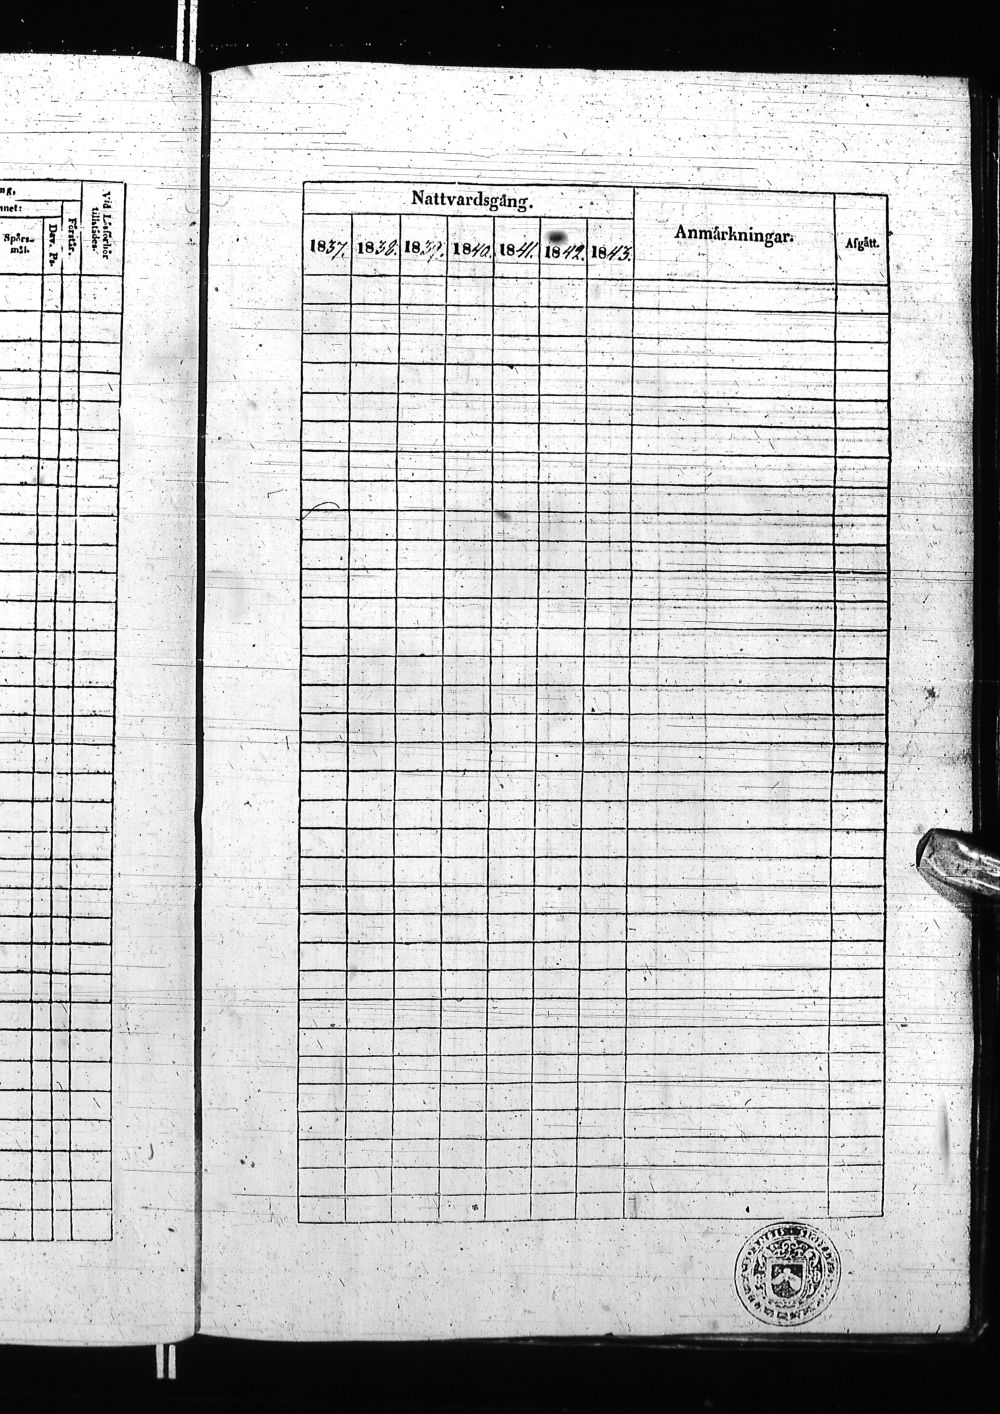 ng,
nnet:
Spörs-
mål.
Dav. Ps.
Förstår.
Vid Läsförhör
tillstädes.
Nattvardsgång.
Anmärkningar.
Afgått.
1837. 1838. 1839. 1840. 1841. 1842. 1843.